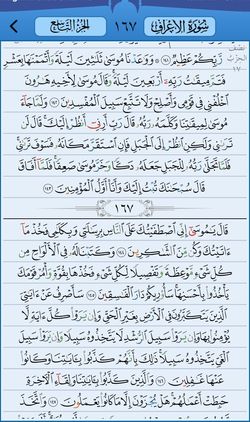 سُورَةُ الأَعْرَافِ ١٦٧ الجُزْءُ التَّاسِعُ
نصف
الحزب
١٧
رَبِّكُمْ عَظِيمٌ ﴿١٤١﴾ ۞ وَوَٰعَدْنَا مُوسَىٰ ثَلَٰثِينَ لَيْلَةً وَأَتْمَمْنَٰهَا بِعَشْرٍ
فَتَمَّ مِيقَٰتُ رَبِّهِۦٓ أَرْبَعِينَ لَيْلَةً ۚ وَقَالَ مُوسَىٰ لِأَخِيهِ هَٰرُونَ
ٱخْلُفْنِى فِى قَوْمِى وَأَصْلِحْ وَلَا تَتَّبِعْ سَبِيلَ ٱلْمُفْسِدِينَ ﴿١٤٢﴾ وَلَمَّا جَآءَ
مُوسَىٰ لِمِيقَٰتِنَا وَكَلَّمَهُۥ رَبُّهُۥ قَالَ رَبِّ أَرِنِىٓ أَنظُرْ إِلَيْكَ ۚ قَالَ لَن
تَرَىٰنِى وَلَٰكِنِ ٱنظُرْ إِلَى ٱلْجَبَلِ فَإِنِ ٱسْتَقَرَّ مَكَانَهُۥ فَسَوْفَ تَرَىٰنِى ۚ
فَلَمَّا تَجَلَّىٰ رَبُّهُۥ لِلْجَبَلِ جَعَلَهُۥ دَكًّا وَخَرَّ مُوسَىٰ صَعِقًا ۚ فَلَمَّآ أَفَاقَ
قَالَ سُبْحَٰنَكَ تُبْتُ إِلَيْكَ وَأَنَا۠ أَوَّلُ ٱلْمُؤْمِنِينَ ﴿١٤٣﴾
١٦٧
قَالَ يَٰمُوسَىٰٓ إِنِّى ٱصْطَفَيْتُكَ عَلَى ٱلنَّاسِ بِرِسَٰلَٰتِى وَبِكَلَٰمِى فَخُذْ مَآ
ءَاتَيْتُكَ وَكُن مِّنَ ٱلشَّٰكِرِينَ ﴿١٤٤﴾ وَكَتَبْنَا لَهُۥ فِى ٱلْأَلْوَاحِ مِن
كُلِّ شَىْءٍ مَّوْعِظَةً وَتَفْصِيلًا لِّكُلِّ شَىْءٍ فَخُذْهَا بِقُوَّةٍ وَأْمُرْ قَوْمَكَ
يَأْخُذُوا۟ بِأَحْسَنِهَا ۚ سَأُو۟رِيكُمْ دَارَ ٱلْفَٰسِقِينَ ﴿١٤٥﴾ سَأَصْرِفُ عَنْ ءَايَٰتِىَ
ٱلَّذِينَ يَتَكَبَّرُونَ فِى ٱلْأَرْضِ بِغَيْرِ ٱلْحَقِّ وَإِن يَرَوْا۟ كُلَّ ءَايَةٍ لَّا
يُؤْمِنُوا۟ بِهَا وَإِن يَرَوْا۟ سَبِيلَ ٱلرُّشْدِ لَا يَتَّخِذُوهُ سَبِيلًا وَإِن يَرَوْا۟ سَبِيلَ
ٱلْغَىِّ يَتَّخِذُوهُ سَبِيلًا ۚ ذَٰلِكَ بِأَنَّهُمْ كَذَّبُوا۟ بِـَٔايَٰتِنَا وَكَانُوا۟
عَنْهَا غَٰفِلِينَ ﴿١٤٦﴾ وَٱلَّذِينَ كَذَّبُوا۟ بِـَٔايَٰتِنَا وَلِقَآءِ ٱلْءَاخِرَةِ
حَبِطَتْ أَعْمَٰلُهُمْ ۚ هَلْ يُجْزَوْنَ إِلَّا مَا كَانُوا۟ يَعْمَلُونَ ﴿١٤٧﴾ وَٱتَّخَذَ